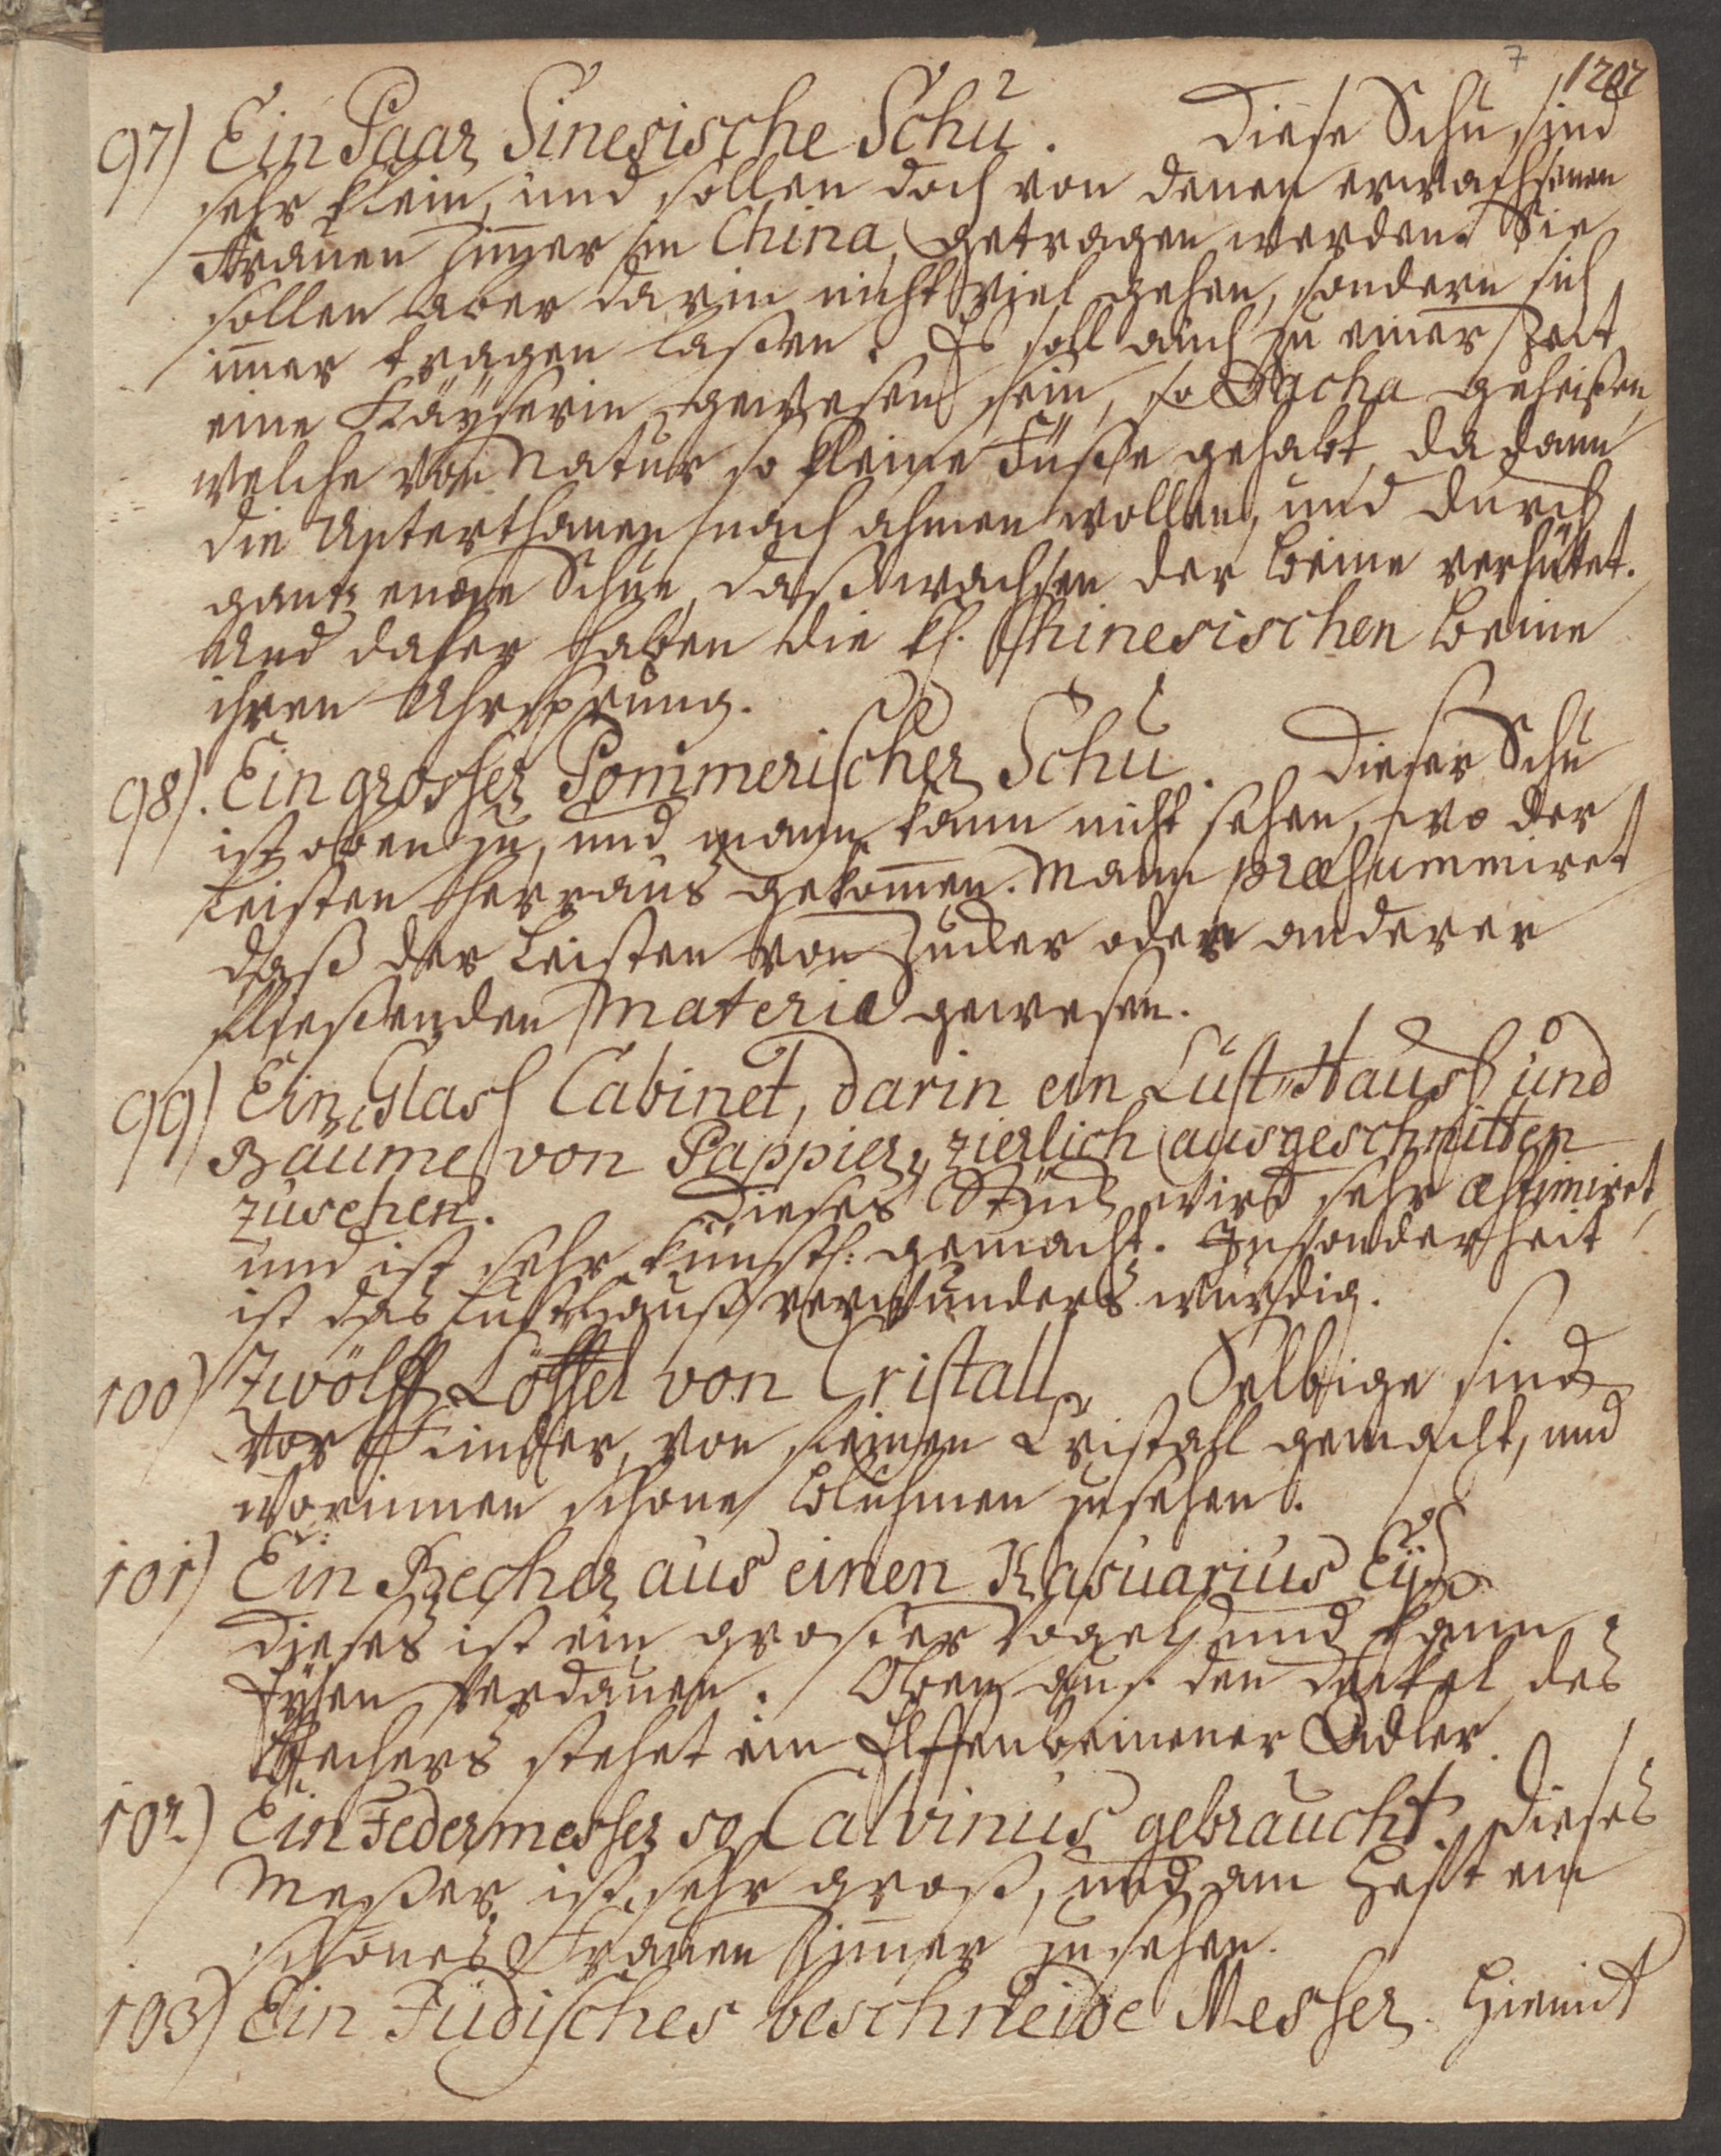 7
1202
97) Ein Paar Sinesische Schu. Diese Schu sind
sehr klein, und sollen doch von denen erwachsenen
Frauen Zim̅er in China getragen werden. Sie
sollen aber darin nicht viel gehen, sondern sich
im̅er tragen laßen. Es soll auch zu einer Zeit
eine Käyserin gewesen sein, so geheißen,
welche von Natur so kleine Füsse gehabt, da dann
die Unterthanen nach ahmen wollen, und durch
gantz enge Schue, daß wachsen der Beine verhütet.
Und daher haben die kl. Chinesischen Beine
ihren Uhrsprung.
98). Ein grosser Pommerischer Schu. Dieser Schu
ist oben zu, und mann kann nicht sehen, wo der
Leisten herraus gekom̅en. Mann præsummiret
daß der Leisten von Zucker oder anderer
fliessenden Materie gewesen.
99) Ein Glass Cabinet, darin ein Lust-Hauss und
Bäume von Pappier, zierlich ausgeschnitten
zusehen. Dieses Stück wird sehr æstimiret,
und ist sehr künstl: gemacht. Insonderheit
ist das Lusthauß verwunderns würdig.
100) Zwölff Löffel von Cristall. Selbige sind
vor Kinder, von feinen Cristall gemacht, und
worinnen schöne Bluhmen zusehen.
101) Ein Becher aus einen Kasuarius Ey.
Dieses ist ein grosser Vogel und kann
Eysen verdauen. Oben auf den Deckel des
Bechers stehet ein Elffenbeinener Adler.
102) Ein Federmesser so Calvinus gebraucht. Dieses
Meßer ist sehr groß, und am Heft ein
schönes Frauen Zim̅er zusehen.
103) Ein Jüdisches beschneide Messer. Hiemit